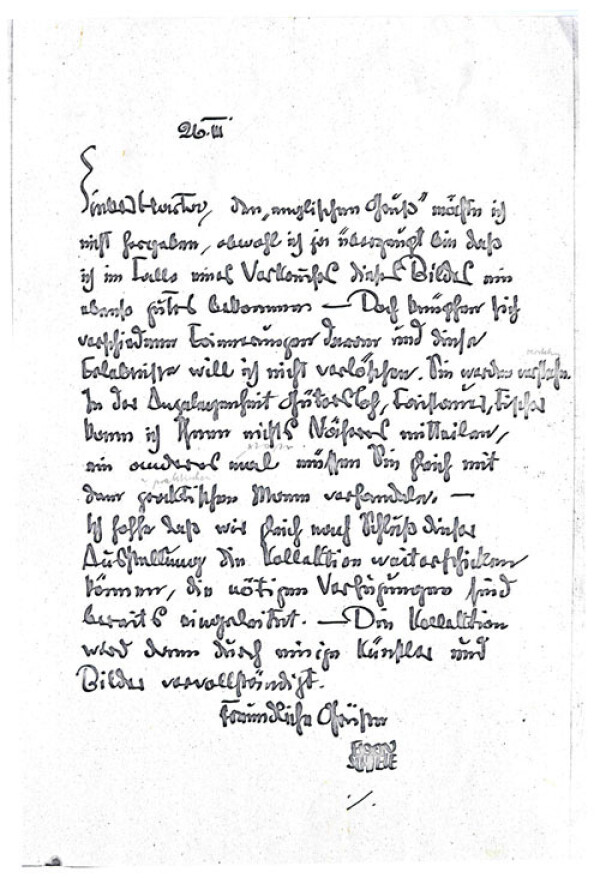 26.III
Lieber den „englischen Gruß" möchte ich
nicht hergeben, obwohl ich ja überzeugt bin daß
ich im Falle eines Verkaufes dieses Bildes ein
ebenso gutes bekomme — Doch knüpfen sich
verschiedene Erinnerungen daran und diese
Erlebnisse will ich nicht verlöschen. Sie werden verstehn.
In der Angelegenheit Gütersloh, Faistauer, Fischer
kann ich Ihnen nichts Näheres mitteilen,
ein anderes mal müssen Sie gleich mit
dem praktischen Mann verhandeln. —
Ich hoffe daß wir gleich nach Schluß dieser
Ausstellung die Kollektion weiterschicken
können, die nötigen Verfügungen sind
bereits eingeleitet. — Die Kollektion
wird dann durch einige Künstler und
Bilder vervollständigt.
Freundliche Grüße